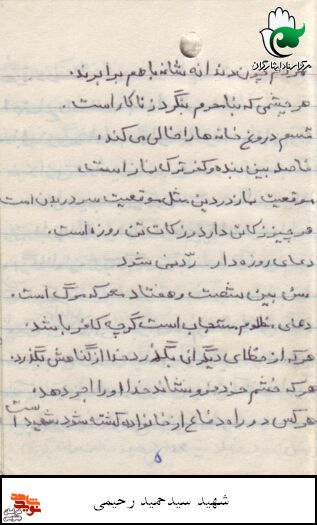 مرکز اسناد ایثارگران
مردم چون دندانه شانه با هم برابرند.
هر چشمی که بنا محرم بنگرد زنا کار است.
قسم دروغ خانه ها را خالی می کند.
فاصله بین بنده و کفر ترک نماز است.
موقعیت نماز در دین مثل موقعیت سر در بدن است
هر چیز زکاتی دارد و زکات تن روزه است.
دعای روزه دار رد نمی شود
سن بین شصت و هفتاد معرکه مرگ است.
دعای مظلوم مستجاب است گرچه کافر باشد.
هر که از خطای دیگران بگذرد خدا از گناهش بگذرد.
هر که خشم خود فرو نشاند خدا او را اجر دهد.
هر کس در راه دفاع از خانواده کشته شود شهید است
۵
شهید سیدحمید رحیمی